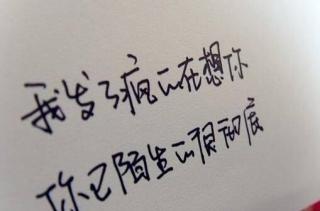 我发了疯的在想你
你已陌生的很彻底